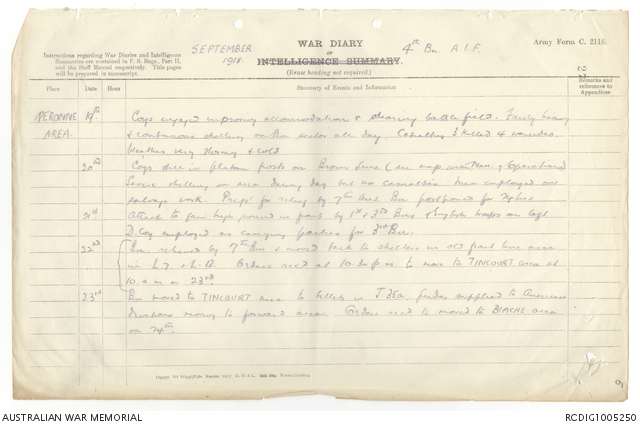 WAR DIARY
or
INTELLIGENCE SUMMARY.
(Erase heading not required.)
Army Form C. 2118.
Instructions regarding War Diaries and Intelligence
Summaries are contained in F. S. Regs., Part II.
and the Staff Manual respectively. Title pages
will be prepared in manuscript.
SEPTEMBER
1918.
4th Bn. A.I.F.
Place
Date
Hour
Summary of Events and Information
Remarks and
references to
Appendices
PERONNE
AREA.
19th
Coys engaged improving accommodation & clearing battlefield. Fairly heavy
& continuous shelling on this sector all day. Casualties 3 killed 4 wounded.
Weather very stormy & cold
20th
Coys still in posts on Brown Line (see map
shelling on area during day but no casualties. Men employed on
salvage work. for relief by 7th Bn postponed for
21st
Attack to be in part by 1st & 3rd Bns & English troops on left
D Coy employed as carrying parties for 3rd Bn.
22nd
Bn relieved by 7th Bn & moved back to shelters in old front line area
in L.7 & L.8. Orders recd at 10.20 p.m. to move to TINCOURT area at
10 a.m. on 23rd.
23rd
Bn moved to TINCOURT area to billets in Guides supplied to American
Divisions moving to forward area. Orders recd to move to BIACHE area
on 24th.
AUSTRALIAN WAR MEMORIAL
RCDIG1005250